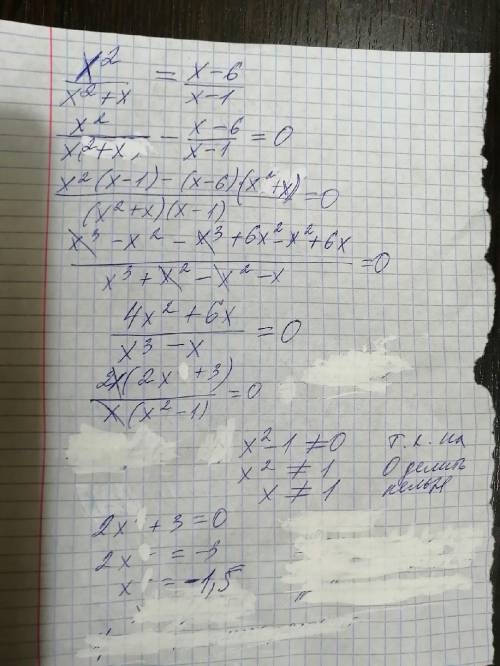 x²/(x²+x) = (x-6)/(x-1)
x²/(x²+x) - (x-6)/(x-1) = 0
(x²(x-1)-(x-6)(x²+x))/((x²+x)(x-1)) = 0
(x³-x²-x³+6x²-x²+6x)/(x³+x²-x²-x) = 0
(4x²+6x)/(x³-x) = 0
2x(2x+3)/(x(x²-1)) = 0
x²-1≠0 т.к. на
x²≠1 0 делить
x≠1 нельзя
2x+3=0
2x=-3
x=-1,5